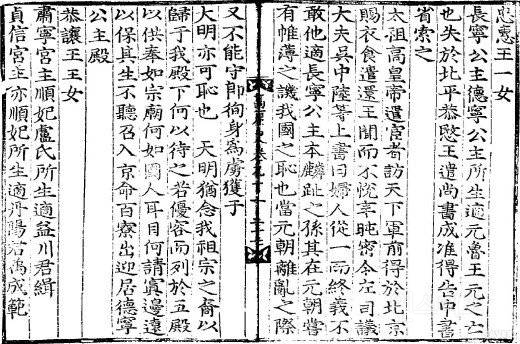 忠惠王一女
長寧公主德寧公主所生適元魯王元之亡
也失於北平恭愍王遣尚書成准得告中書
省索之
太祖高皇帝遣宦者訪天下軍前得於北京
賜衣食遣還王聞而不悅辛旽密令左司議
大夫吳中陸等上書曰婦人從一而終義不
敢他適長寧公主本麟趾之孫其在元朝嘗
有帷薄之譏我國之恥也當元朝離亂之際
高麗史卷九十一
又不能守節徇身爲虜獲于
大明亦可恥也 天明猶念我祖宗之裔以
歸于我殿下何以待之若優容而列於五殿
以供奉如宗廟何如國人耳目何請寘邊遠
以保其生不聽召入京命百寮出迎居德寧
公主殿
恭讓王王女
肅寧宮主順妃盧氏所生適益川君緝
貞信宮主亦順妃所生適丹陽君禹成範